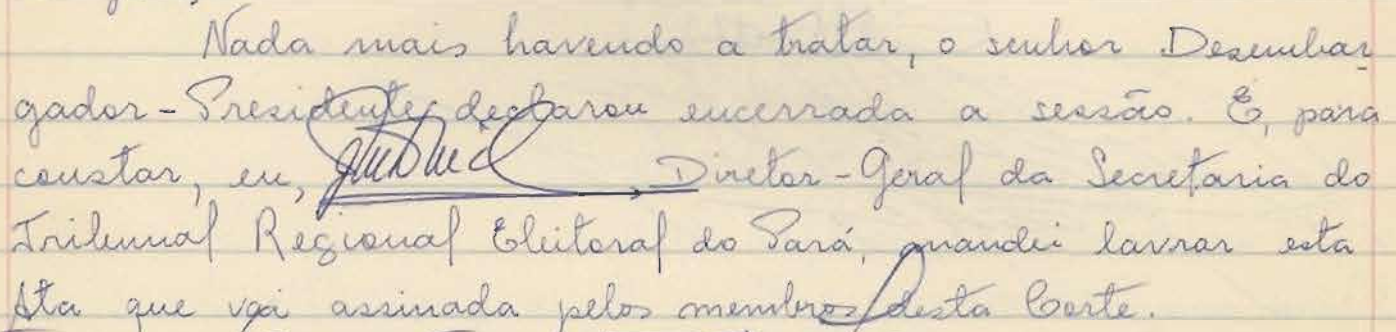 Nada mais havendo a tratar, o senhor Desembar
gador-Presidente declarou encerrada a sessão. E, para
constar, eu, Diretor-Geral da Secretaria do
Tribunal Regional Eleitoral do Pará, mandei lavrar esta
Ata que vai assinada pelos membros desta Corte.